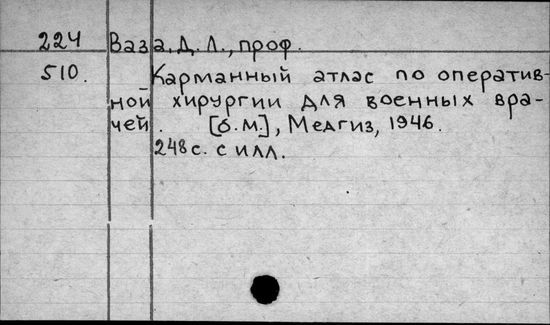 224 Ваза, Д. Л., проф.
510. Карманный атлас по оператив-
ной хирургии для военных вра-
чей. [б.м.], Медгиз, 1946.
248 с. с илл.